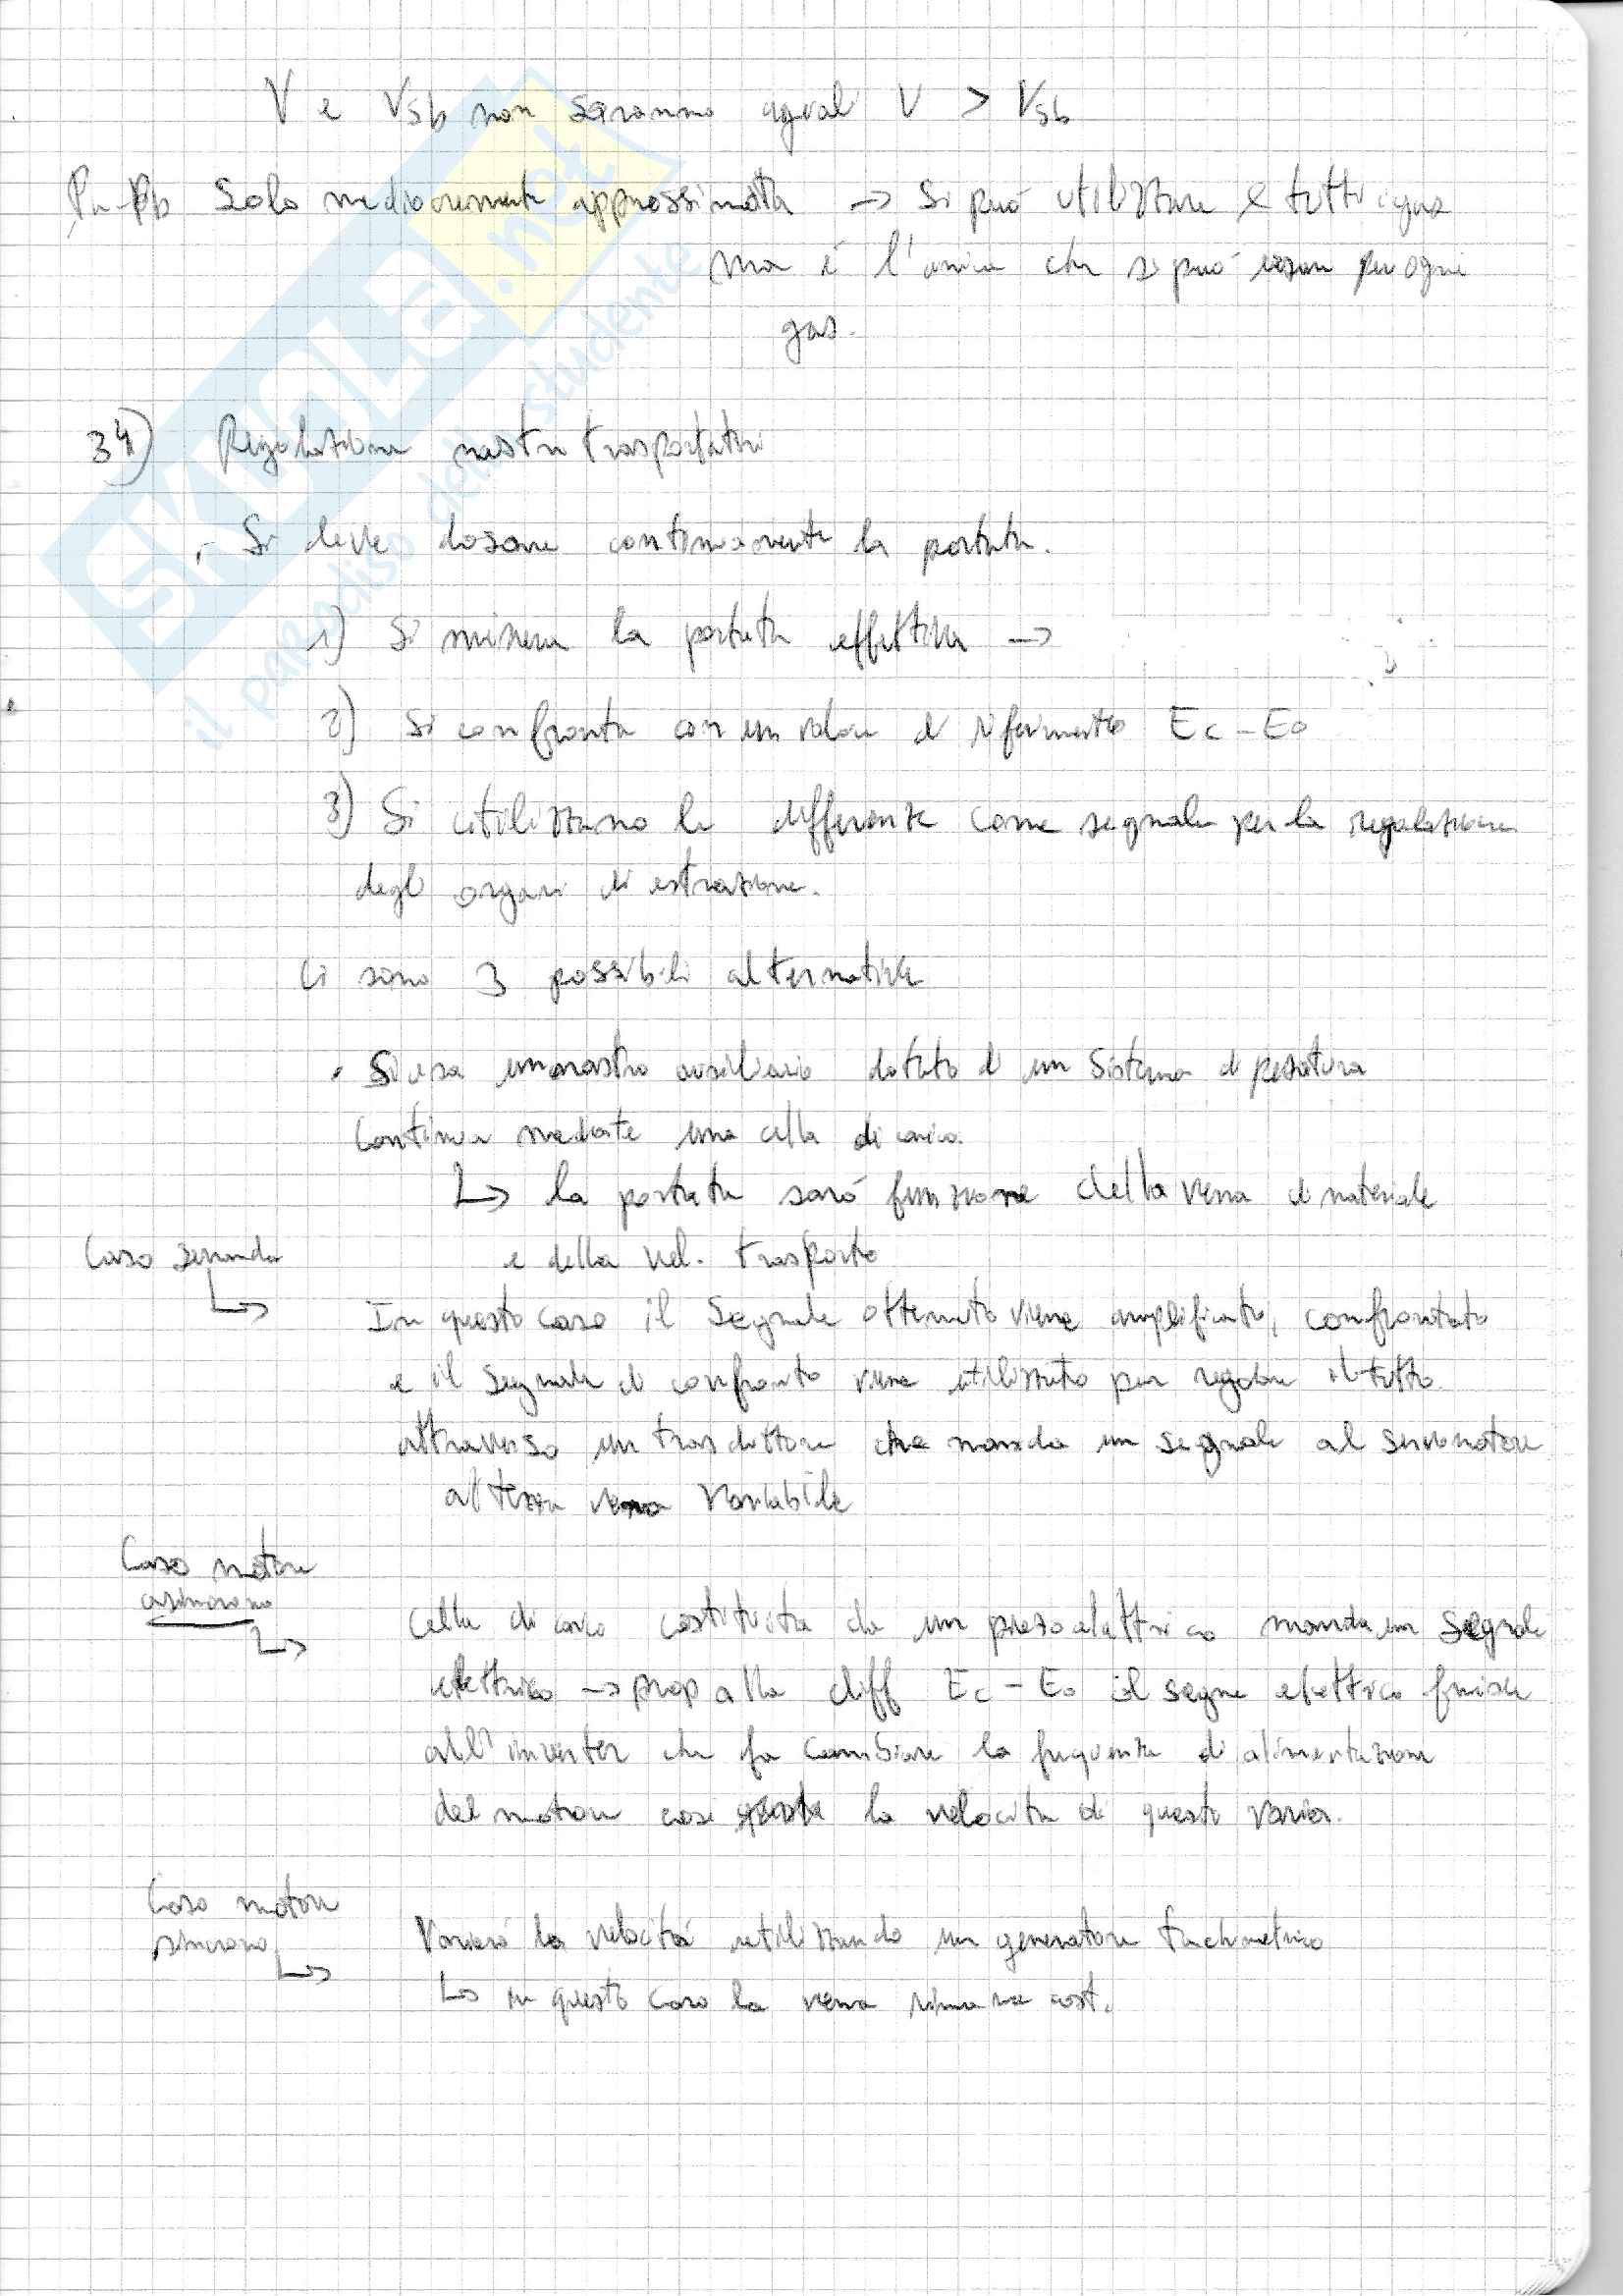 V e Vsb non saranno uguali V > Vsb
Solo mediocremente approssimata → Si può utilizzare e tutti i gas
ma è l'unica che si può usare per ogni
gas.
34) Regolazione nastri trasportatori
. Si deve dosare continuamente la portata.
1) Si misura la portata effettiva →
2) Si confronta con un valore di riferimento Ec - E0
3) Si utilizzano la differenza come segnale per la regolazione
degli organi di estrazione.
Ci sono 3 possibili alternative
. Si usa un nastro ausiliario dotato di un Sistema di pesatura
continua mediante una cella di carico.
↳ la portata sarà funzione della vena di materiale
e della vel. trasporto
Caso serranda
↳ In questo caso il Segnale ottenuto viene amplificato, confrontato
e il segnale di confronto viene utilizzato per regolare il tutto
attraverso un trasduttore che manda un segnale al servomotore
altezza vena variabile
Caso motore
asincrono
↳ Cella di carico costituita da un piezoelettrico manda un Segnale
elettrico → prop alla diff Ec - E0 il segne elettrico finisce
all'inverter che fa cambiare la frequenza di alimentazione
del motore così la velocità di questo varia.
Caso motore
sincrono
↳ Varierò la velocità utilizzando un generatore tachimetrico
↳ in questo caso la vena rimane cost.
SKUOLA.net
il paradiso dello studente